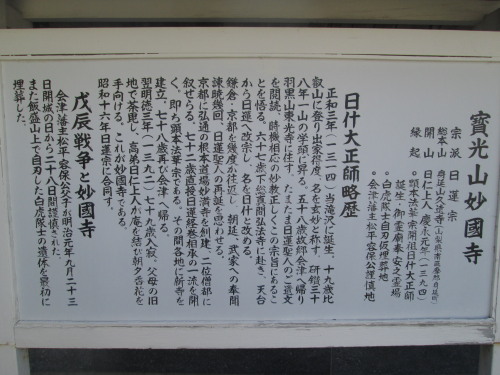 寳光山妙國寺
宗派 日蓮宗
総本山 身延山久遠寺(山梨県南巨摩郡身延町)
開山 日仁上人 慶永元年(一三九四)
縁起
。顕本法華宗開祖日什大正師
誕生・御霊廟奉安之霊場
。白虎隊士自刃仮埋葬地
。会津藩主松平容保公謹慎地
日什大正師略歴
正和三年(一三一四)当滝沢に誕生、十九歳比
叡山に登り出家得度、名を玄妙と称す、研鑚三十
八年一山の学頭に昇る。五十八歳故師会津へ帰り
羽黒山東光寺に住す。たまたま日蓮聖人のご遺文
を閲読、時機相応の妙教正しくこの宗旨にあるこ
とを悟る。六十七歳下総真間弘法寺に赴き、天台
から日蓮へ改宗し、名を日什と改める。
鎌倉・京都を幾度か往返し朝廷、武家への奏聞
諫暁幾回、日蓮聖人の再誕を思わせる。
京都に弘通の根本道場妙満寺を創建、二位僧都に
叙せらる。七十二歳直授日蓮経巻相承の一流を開
く、即ち顕本法華宗である。その間各地に新寺を
建立、七十八歳再び会津へ帰る。
翌明徳三年(一三九二)七十九歳入寂、父母の旧
地で荼毘し、高弟日仁上人が庵を結び朝夕香花を
手向ける。これが妙國寺である。
昭和十六年日蓮宗に合同す。
戊辰戦争と妙國寺
会津藩主松平容保公父子が明治元年九月二十三
日開城の日から二十八日間謹慎された。
また飯盛山上で自刃した白虎隊士の遺体を最初に
埋葬した。